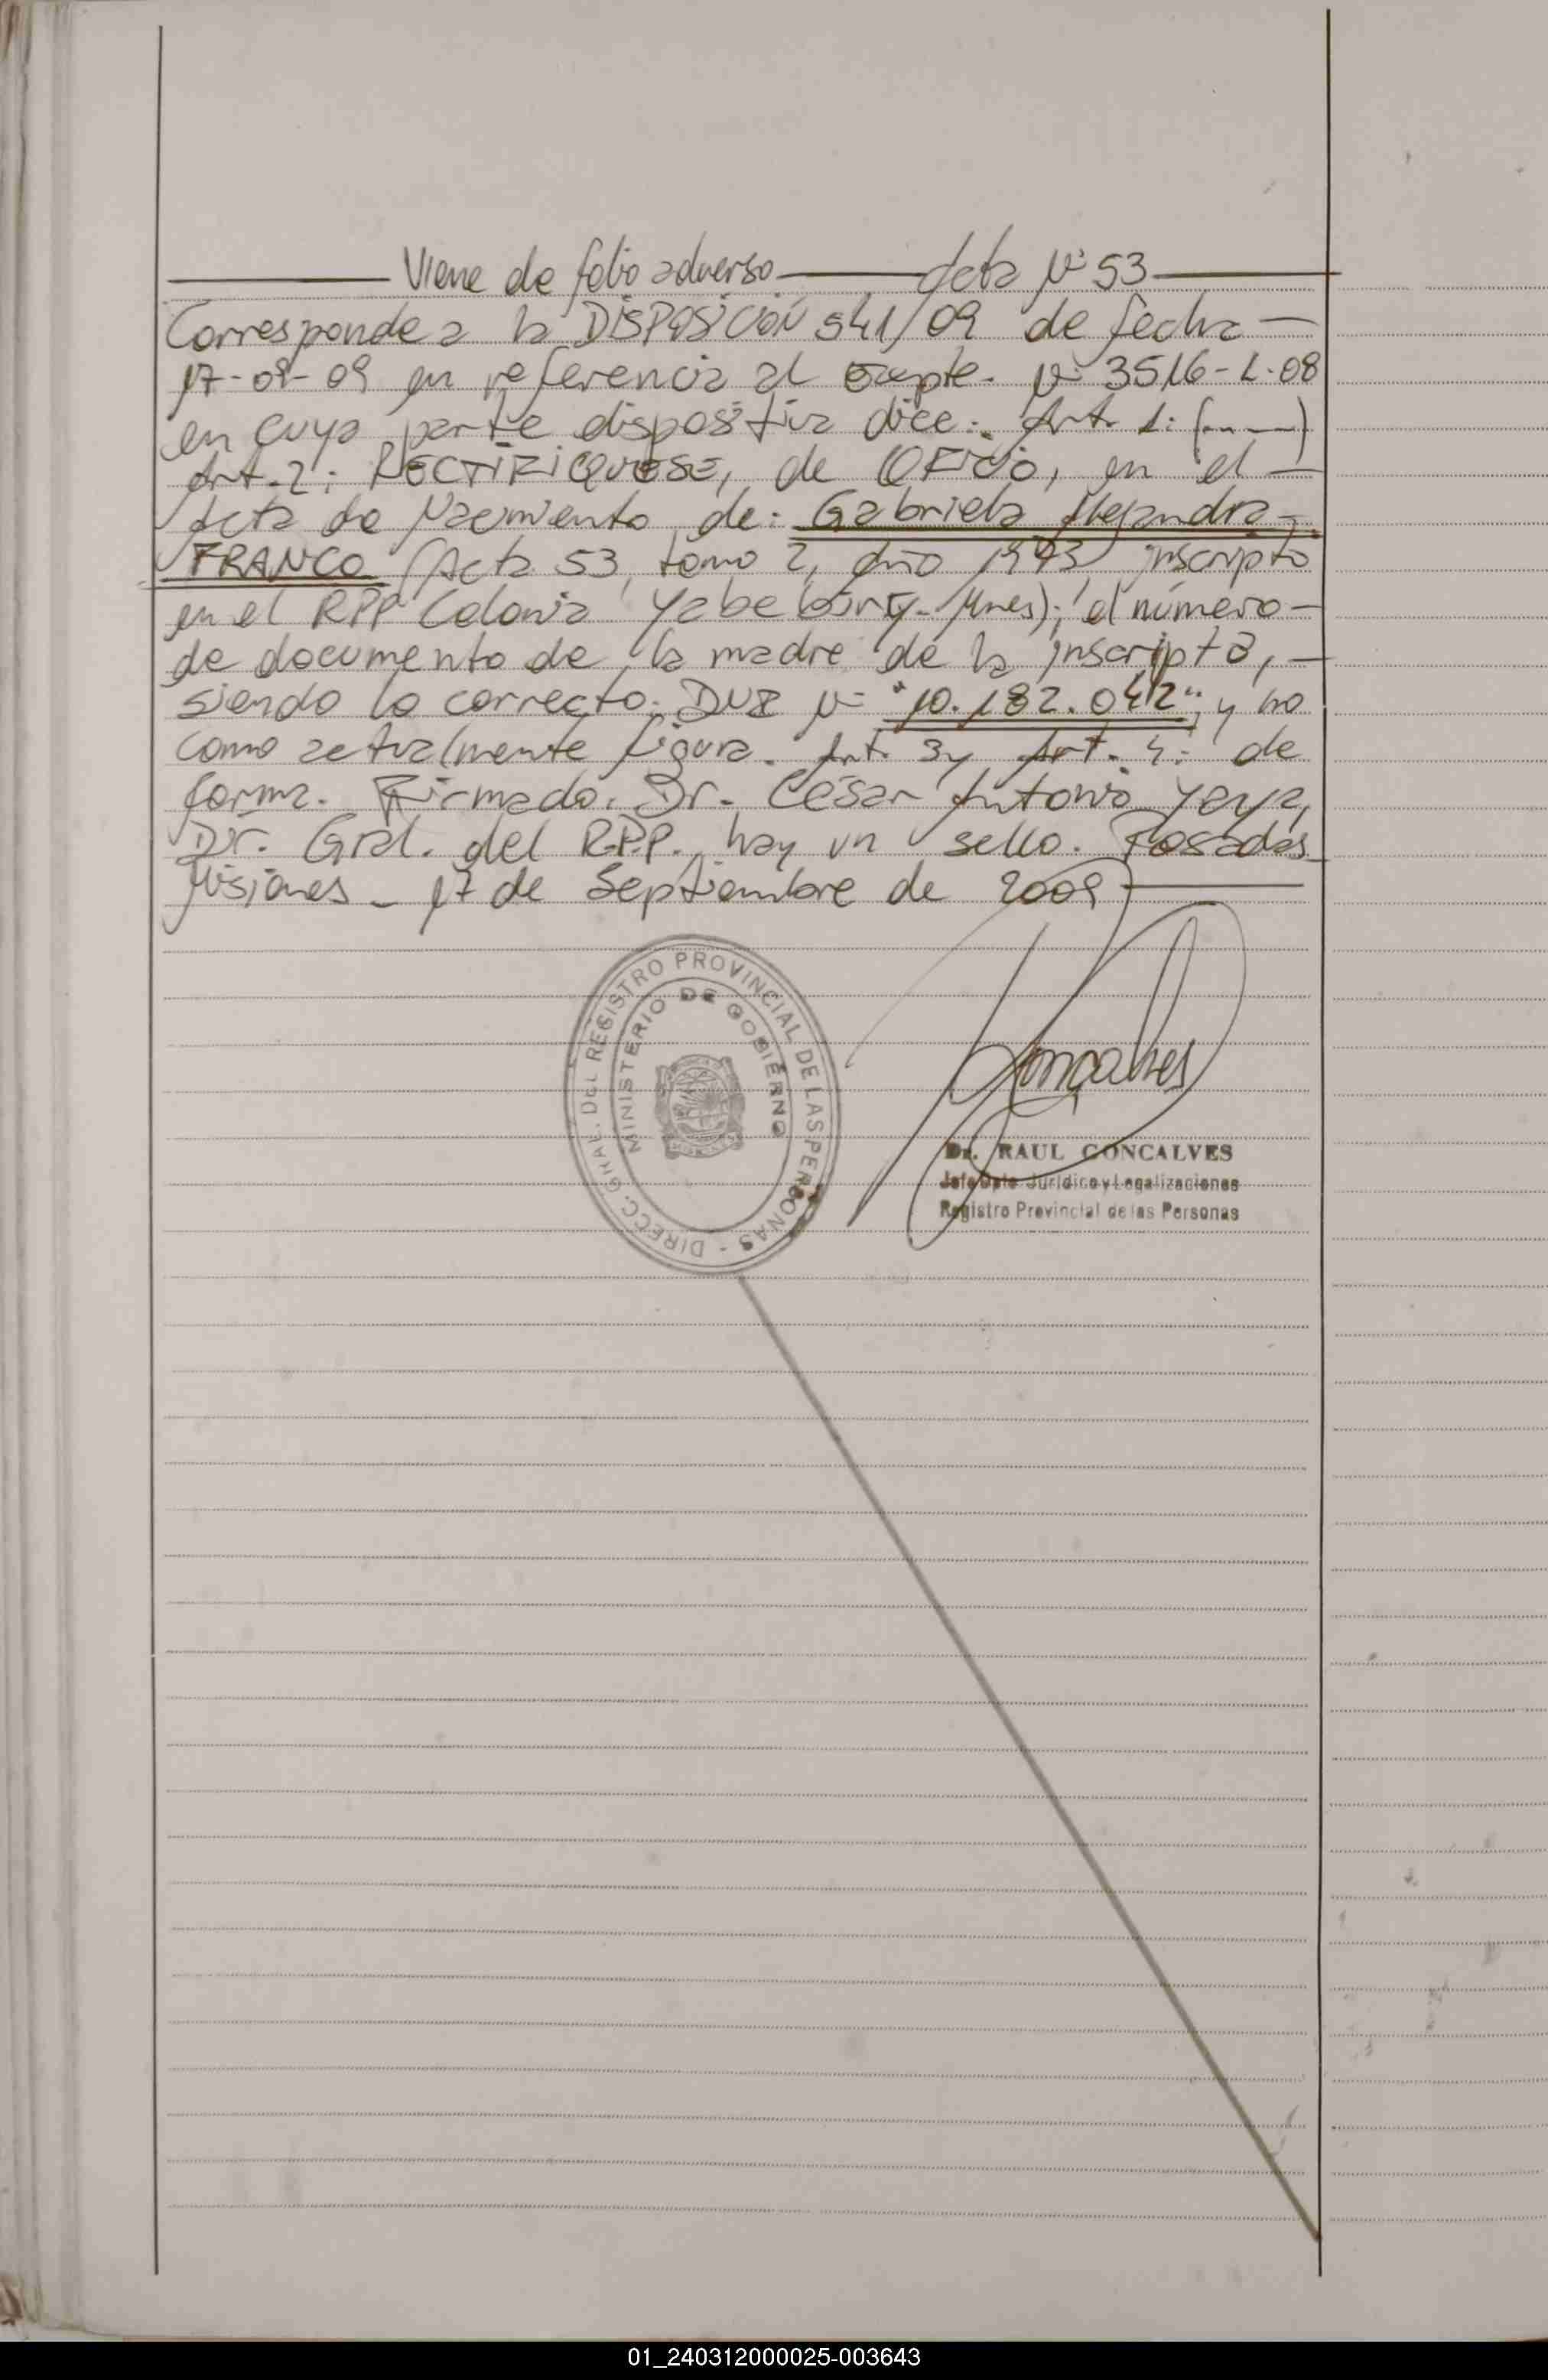 Viene de folio adverso Acta Nº 53
Corresponde a la DISPOSICIÓN 541/09 de fecha
17-09-09 en referencia al Expte. Nº 3516-L-08
en cuya parte dispositiva dice: Art. 1: (.....)
Art. 2: RECTIFIQUESE, de OFICIO, en el
Acta de Nacimiento de: Gabriela Alejandra
FRANCO (Acta 53, tomo 2, año 1973, inscripto
en el RPP Colonia Yabebiry - Mnes); el número
de documento de la madre de la inscripta,
siendo lo correcto: DNI Nº "10.182.042"; y no
como actualmente figura. Art. 3 y Art. 4: de
forma. Firmado. Dr. César Antonio Yaya,
Dir. Gral. del R.P.P. hay un sello. Posadas
Misiones - 17 de Septiembre de 2009
DIRECC. GRAL. DEL REGISTRO PROVINCIAL DE LAS PERSONAS -
MINISTERIO DE GOBIERNO
Gonçalves
Dr. RAUL GONCALVES
Jefe Dpto. Jurídico y Legalizaciones
Registro Provincial de las Personas
01_240312000025-003643